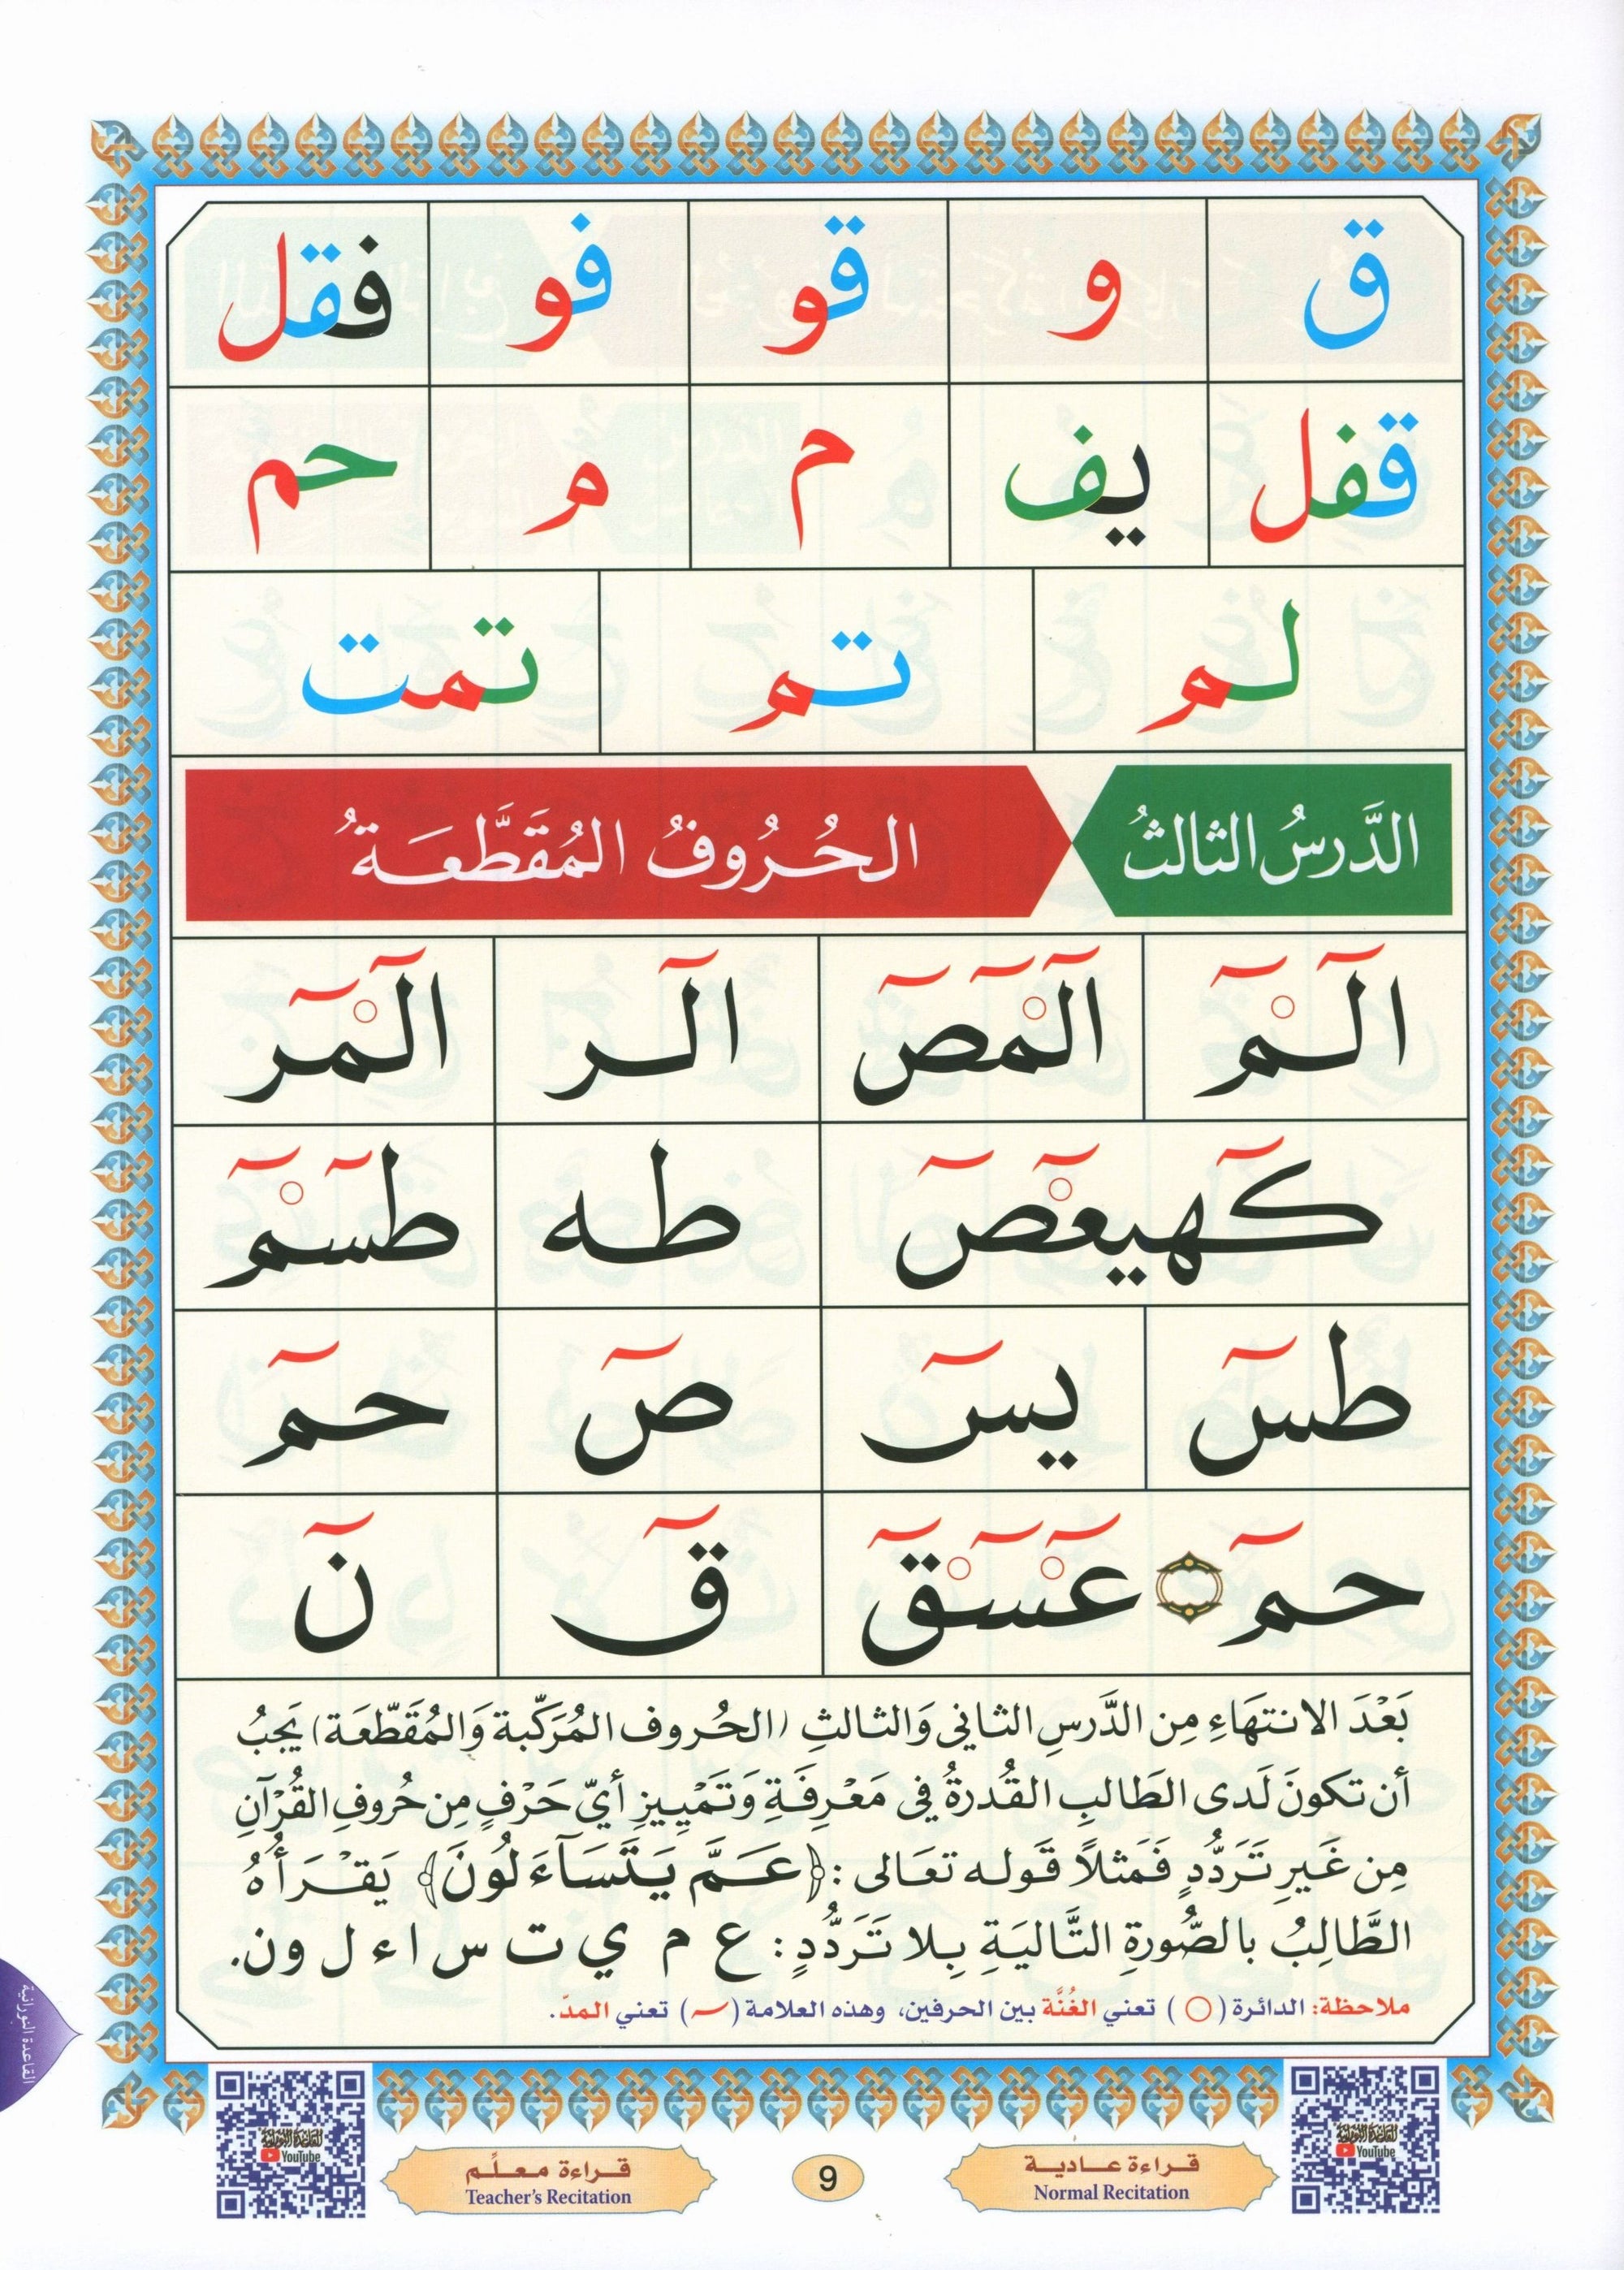 ق و قو فو فقل
قفل يف م م حم
لم تم تمت
الدَّرسُ الثالثُ الحُرُوفُ المُقَطَّعَةُ
الٓمٓ الٓمٓصٓ الٓر الٓمٓر
كٓهيعٓصٓ طه طسٓمٓ
طسٓ يسٓ صٓ حمٓ
حمٓ عٓسٓقٓ قٓ نٓ
بَعْدَ الانتهَاءِ مِن الدَّرسِ الثاني وَالثالثِ (الحُروف المُرَكّبة وَالمُقَطّعَة) يَجبُ
أن تكونَ لَدى الطَالبِ القُدرةُ في مَعْرِفَةِ وَتَمْيِيزِ أيّ حَرْفٍ مِن حُروفِ القُرْآنِ
مِن غَيرِ تَرَدُّدٍ فَمَثلاً قَوله تعَالى : ﴿عَمَّ يَتَسَآءَلُونَ﴾ يَقْرَأُهُ
الطَّالِبُ بالصُّورةِ التَّاليَةِ بِلا تَرَدُّدٍ: ع م ي ت س ا ء ل و ن.
ملاحظة: الدائرة (○) تعني الغُنَّة بين الحرفين، وهذه العلامة (ٓ) تعني المدّ.
القاعدة النورانية
القاعدة النورانية YouTube
قراءة معلّم
Teacher's Recitation
9
قراءة عادية
Normal Recitation
القاعدة النورانية YouTube